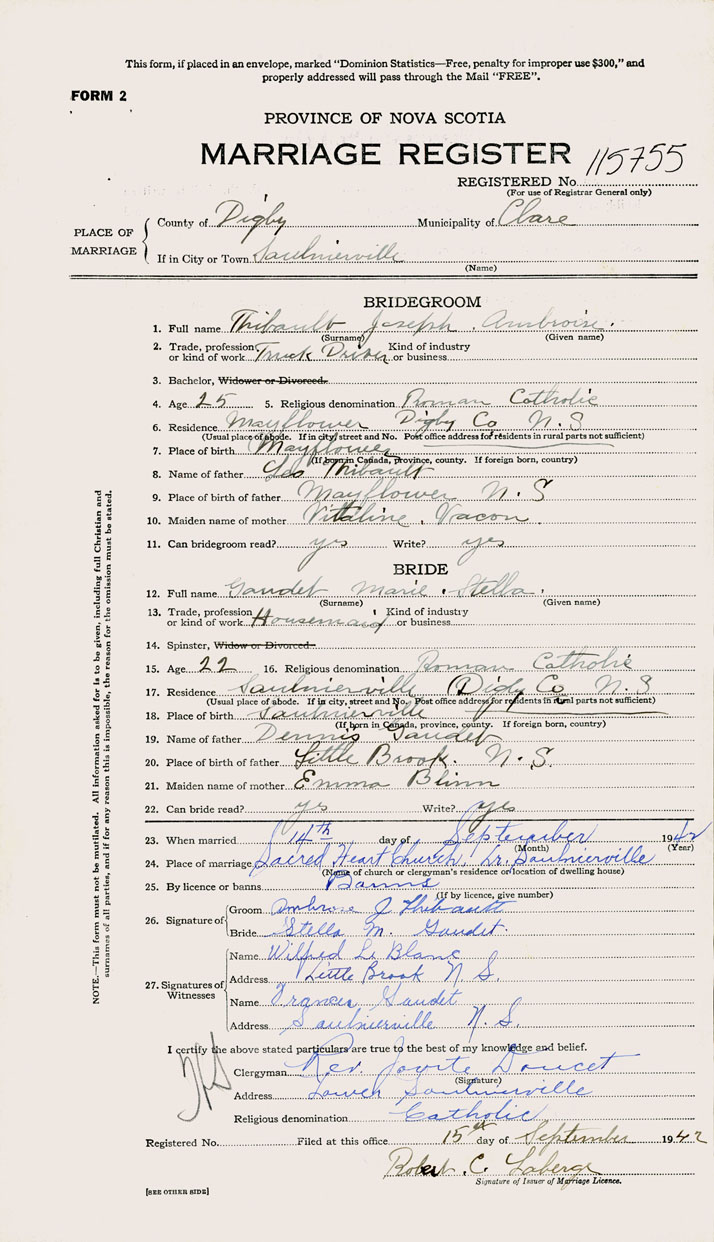 This form, if placed in an envelope, marked “Dominion Statistics—Free, penalty for improper use $300,” and
properly addressed will pass through the Mail “FREE”.
FORM 2
PROVINCE OF NOVA SCOTIA
MARRIAGE REGISTER 115755
REGISTERED No.
(For use of Registrar General only)
PLACE OF MARRIAGE
County of Digby Municipality of Clare
If in City or Town Saulnierville
(Name)
BRIDEGROOM
1. Full name Thibault Joseph Ambroise.
(Surname) (Given name)
2. Trade, profession or kind of work Truck Driver Kind of industry or business
3. Bachelor, Widower or Divorced.
4. Age 25 5. Religious denomination Roman Catholic
6. Residence Mayflower Digby Co N.S
(Usual place of abode. If in city, street and No. Post office address for residents in rural parts not sufficient)
7. Place of birth Mayflower
(If born in Canada, province, county. If foreign born, country)
8. Name of father Leo Thibault
9. Place of birth of father Mayflower N.S
10. Maiden name of mother Vitaline Vacon
11. Can bridegroom read? yes Write? yes
BRIDE
12. Full name Gaudet Marie Stella.
(Surname) (Given name)
13. Trade, profession or kind of work Housemaid Kind of industry or business
14. Spinster, Widow or Divorced
15. Age 22 16. Religious denomination Roman Catholic
17. Residence Saulnierville Digby Co N.S
(Usual place of abode. If in city, street and No. Post office address for residents in rural parts not sufficient)
18. Place of birth Saulnierville
(If born in Canada, province, county. If foreign born, country)
19. Name of father Dennis Gaudet
20. Place of birth of father Little Brook. N.S.
21. Maiden name of mother Emma Blinn
22. Can bride read? yes Write? yes
23. When married 14th day of September 1942
(Month) (Year)
24. Place of marriage Sacred Heart Church, Lr. Saulnierville
(Name of church or clergyman's residence or location of dwelling house)
25. By licence or banns Banns
(If by licence, give number)
26. Signature of
Groom Ambrose J Thibault
Bride Stella M. Gaudet.
27. Signatures of Witnesses
Name Wilfred Le Blanc
Address Little Brook N.S.
Name Frances Gaudet
Address Saulnierville N.S.
I certify the above stated particulars are true to the best of my knowledge and belief.
Clergyman Rev. Doucet
(Signature)
Address Lower Saulnierville
Religious denomination Catholic
Registered No. Filed at this office 15th day of September 1942
Robert C. Laberge
Signature of Issuer of Marriage Licence.
[SEE OTHER SIDE]
NOTE.—This form must not be mutilated. All information asked for is to be given, including full Christian and
surnames of all parties, and if for any reason this is impossible, the reason for the omission must be stated.